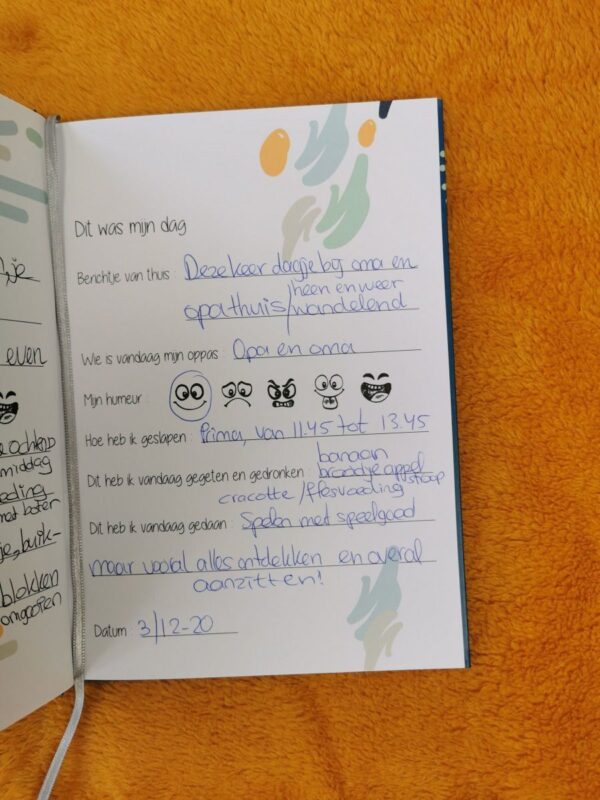 je
even
ochtend
middag
eding
met boter
je, buik-
blokken
omgooien
Dit was mijn dag
Berichtje van thuis : Deze keer dagje bij oma en
opa thuis / heen en weer
wandelend
Wie is vandaag mijn oppas : Opa en oma
Mijn humeur :
Hoe heb ik geslapen : Prima, van 11.45 tot 13.45
banaan
Dit heb ik vandaag gegeten en gedronken : broodje appelstroop
cracotte / flesvoeding
Dit heb ik vandaag gedaan : Spelen met speelgoed
maar vooral alles ontdekken en overal
aanzitten!
Datum : 3/12-20